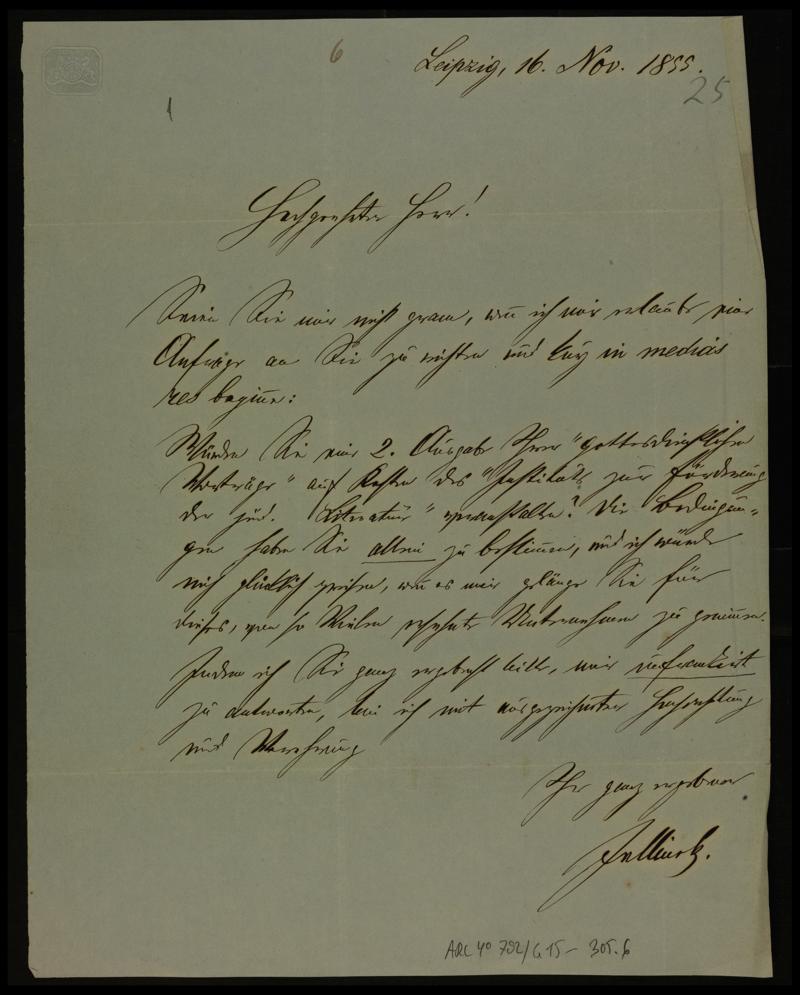 6
Leipzig, 16. Nov. 1855.
25
1
Hochgeehrter Herr!
Seien Sie mir nicht gram, wenn ich mir erlaube eine
Anfrage an Sie zu richten und kurz in medias
res beginne:
Würden Sie eine 2. Ausgabe Ihrer "gottesdienstlichen
Vorträge" auf Kosten des "Instituts zur Förderung
der jüd. Literatur" veranstalten? Die Bedingun-
gen haben Sie allein zu bestimmen, und ich würde
mich glücklich preisen, wenn es mir gelänge Sie für
dieses, von so Vielen ersehnte Unternehmen zu gewinnen.
Indem ich Sie ganz ergebenst bitte, mir unfrankirt
zu antworten, bin ich mit ausgezeichneter Hochachtung
und Verehrung
Ihr ganz ergebener
Jellinek.
ARC 4° 792/G 15 - 305.6